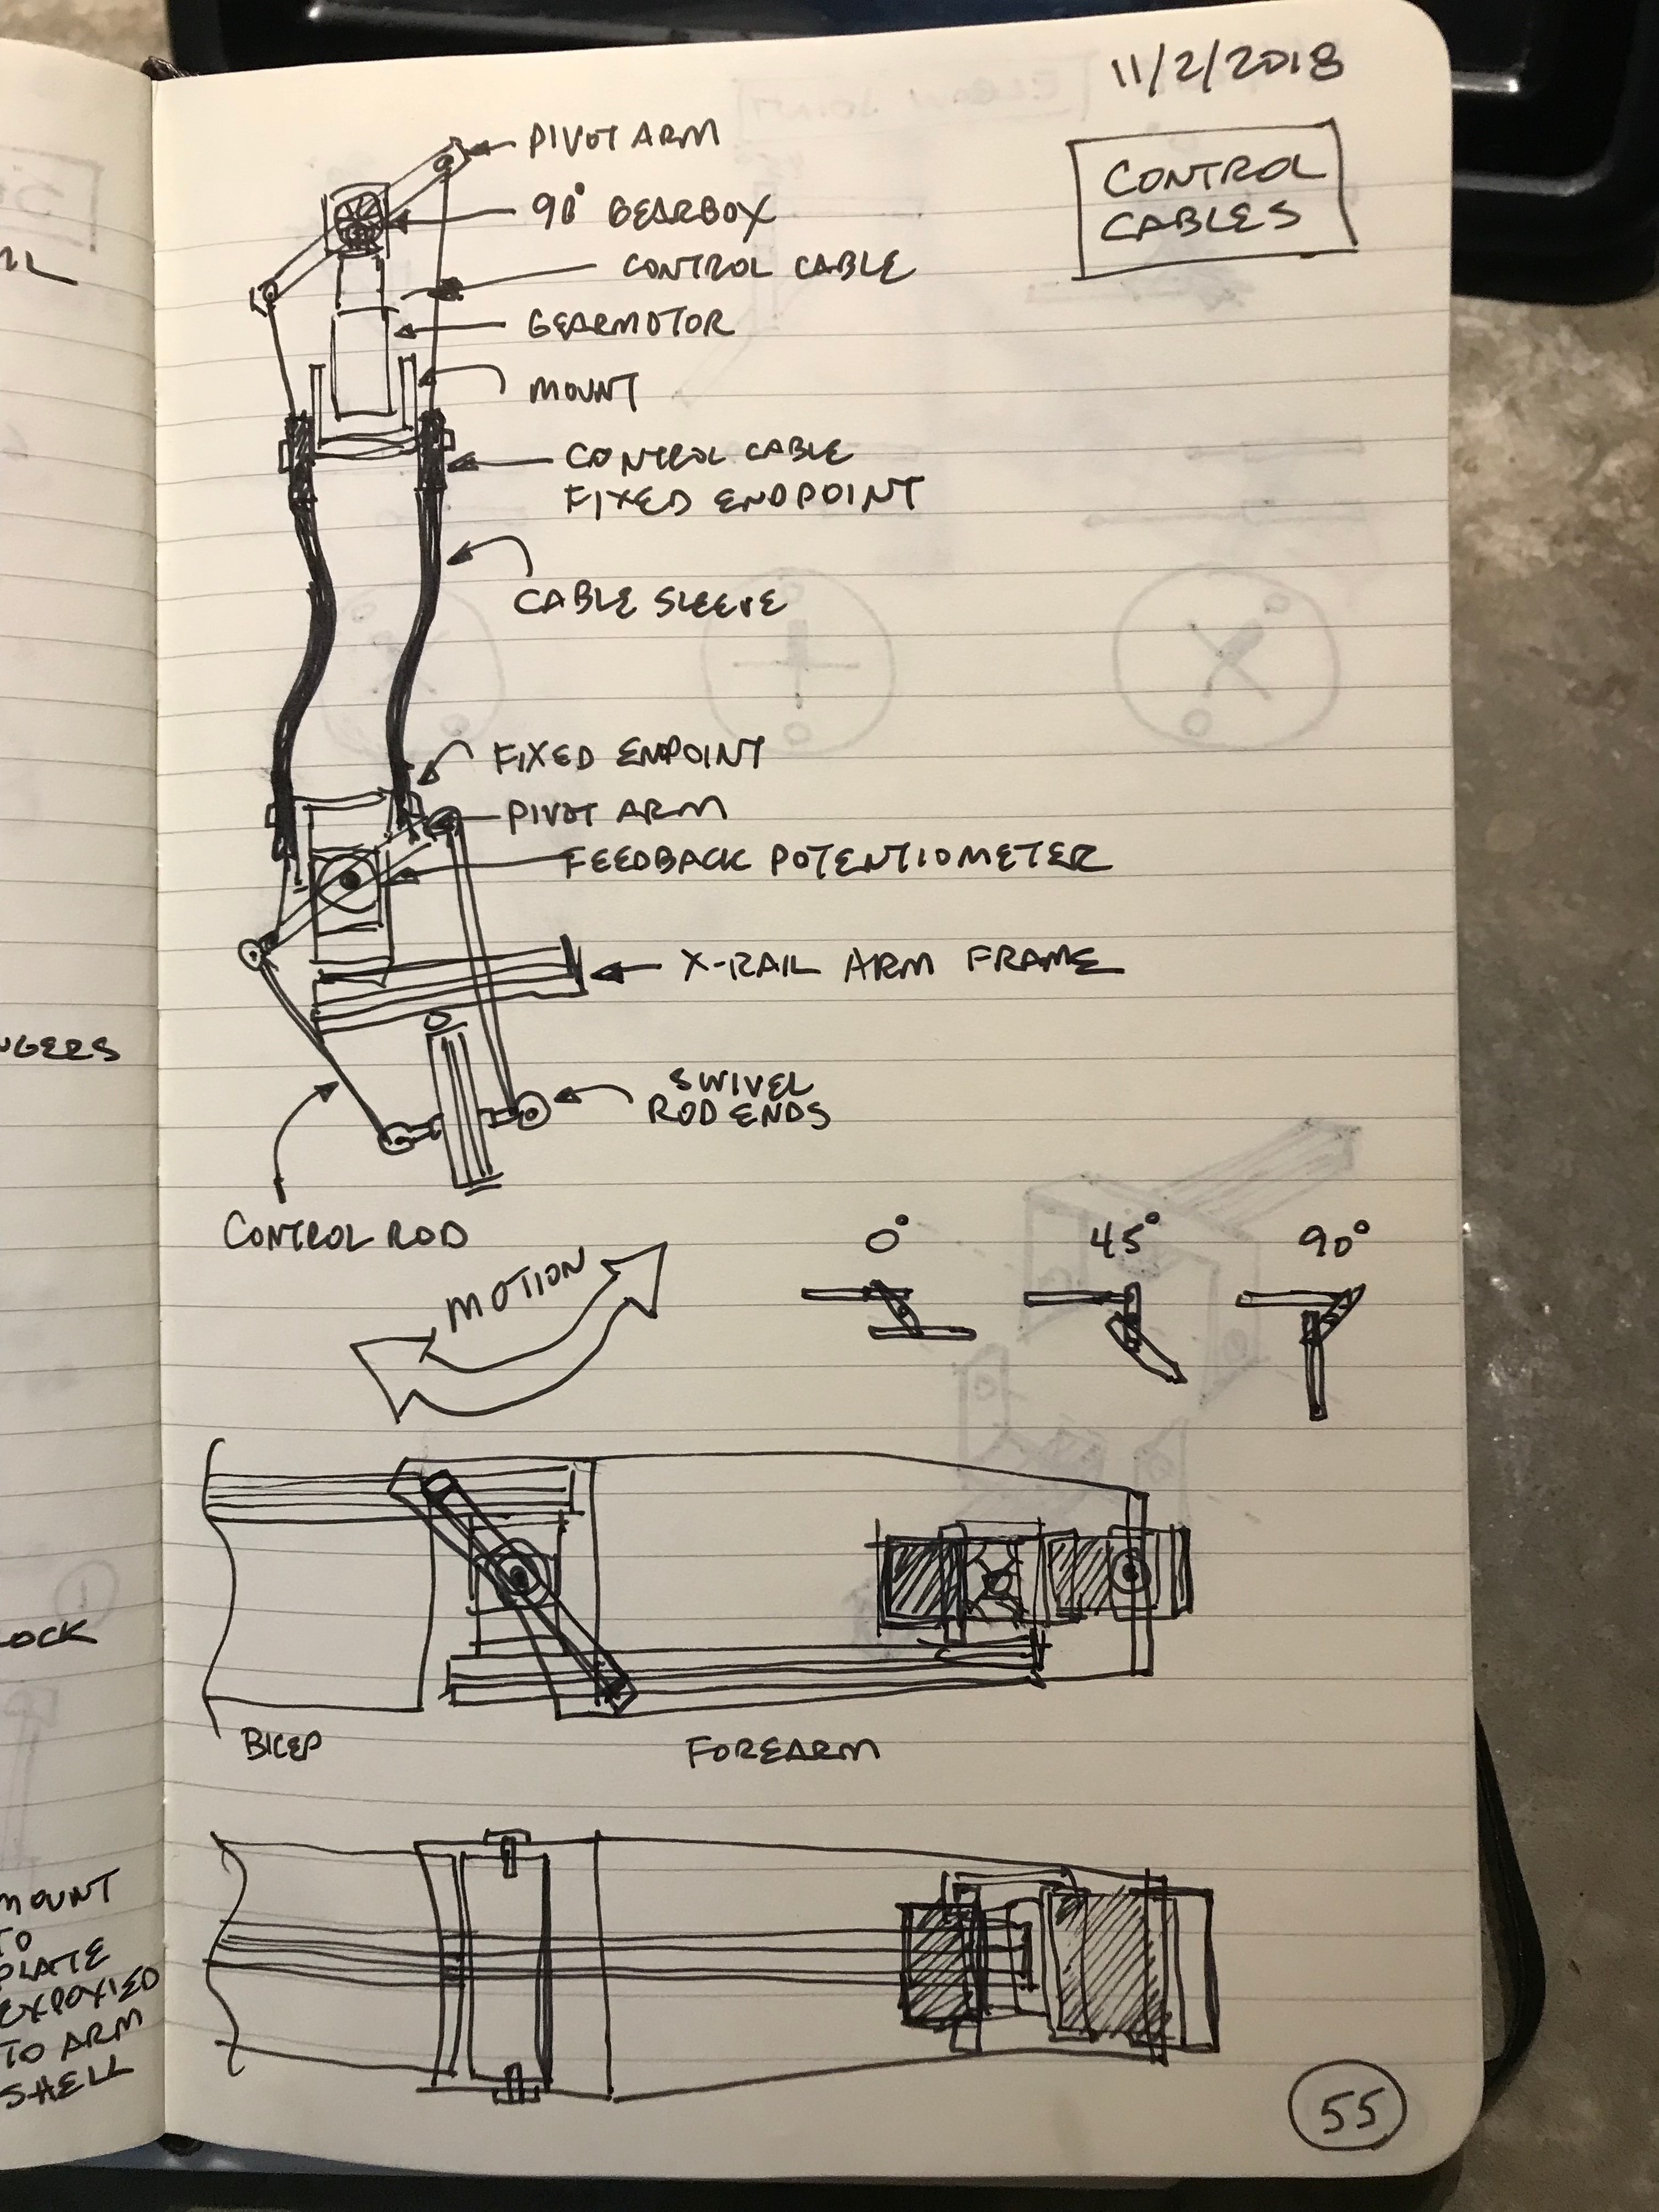 11/2/2018
CONTROL
CABLES
PIVOT ARM
90° GEARBOX
CONTROL CABLE
GEARMOTOR
MOUNT
CONTROL CABLE
FIXED ENDPOINT
CABLE SLEEVE
FIXED ENPOINT
PIVOT ARM
FEEDBACK POTENTIOMETER
X-RAIL ARM FRAME
SWIVEL
ROD ENDS
CONTROL ROD
MOTION
0° 45° 90°
BICEP FOREARM
55
MOUNT
TO
PLATE
EXPOXIED
TO ARM
SHELL